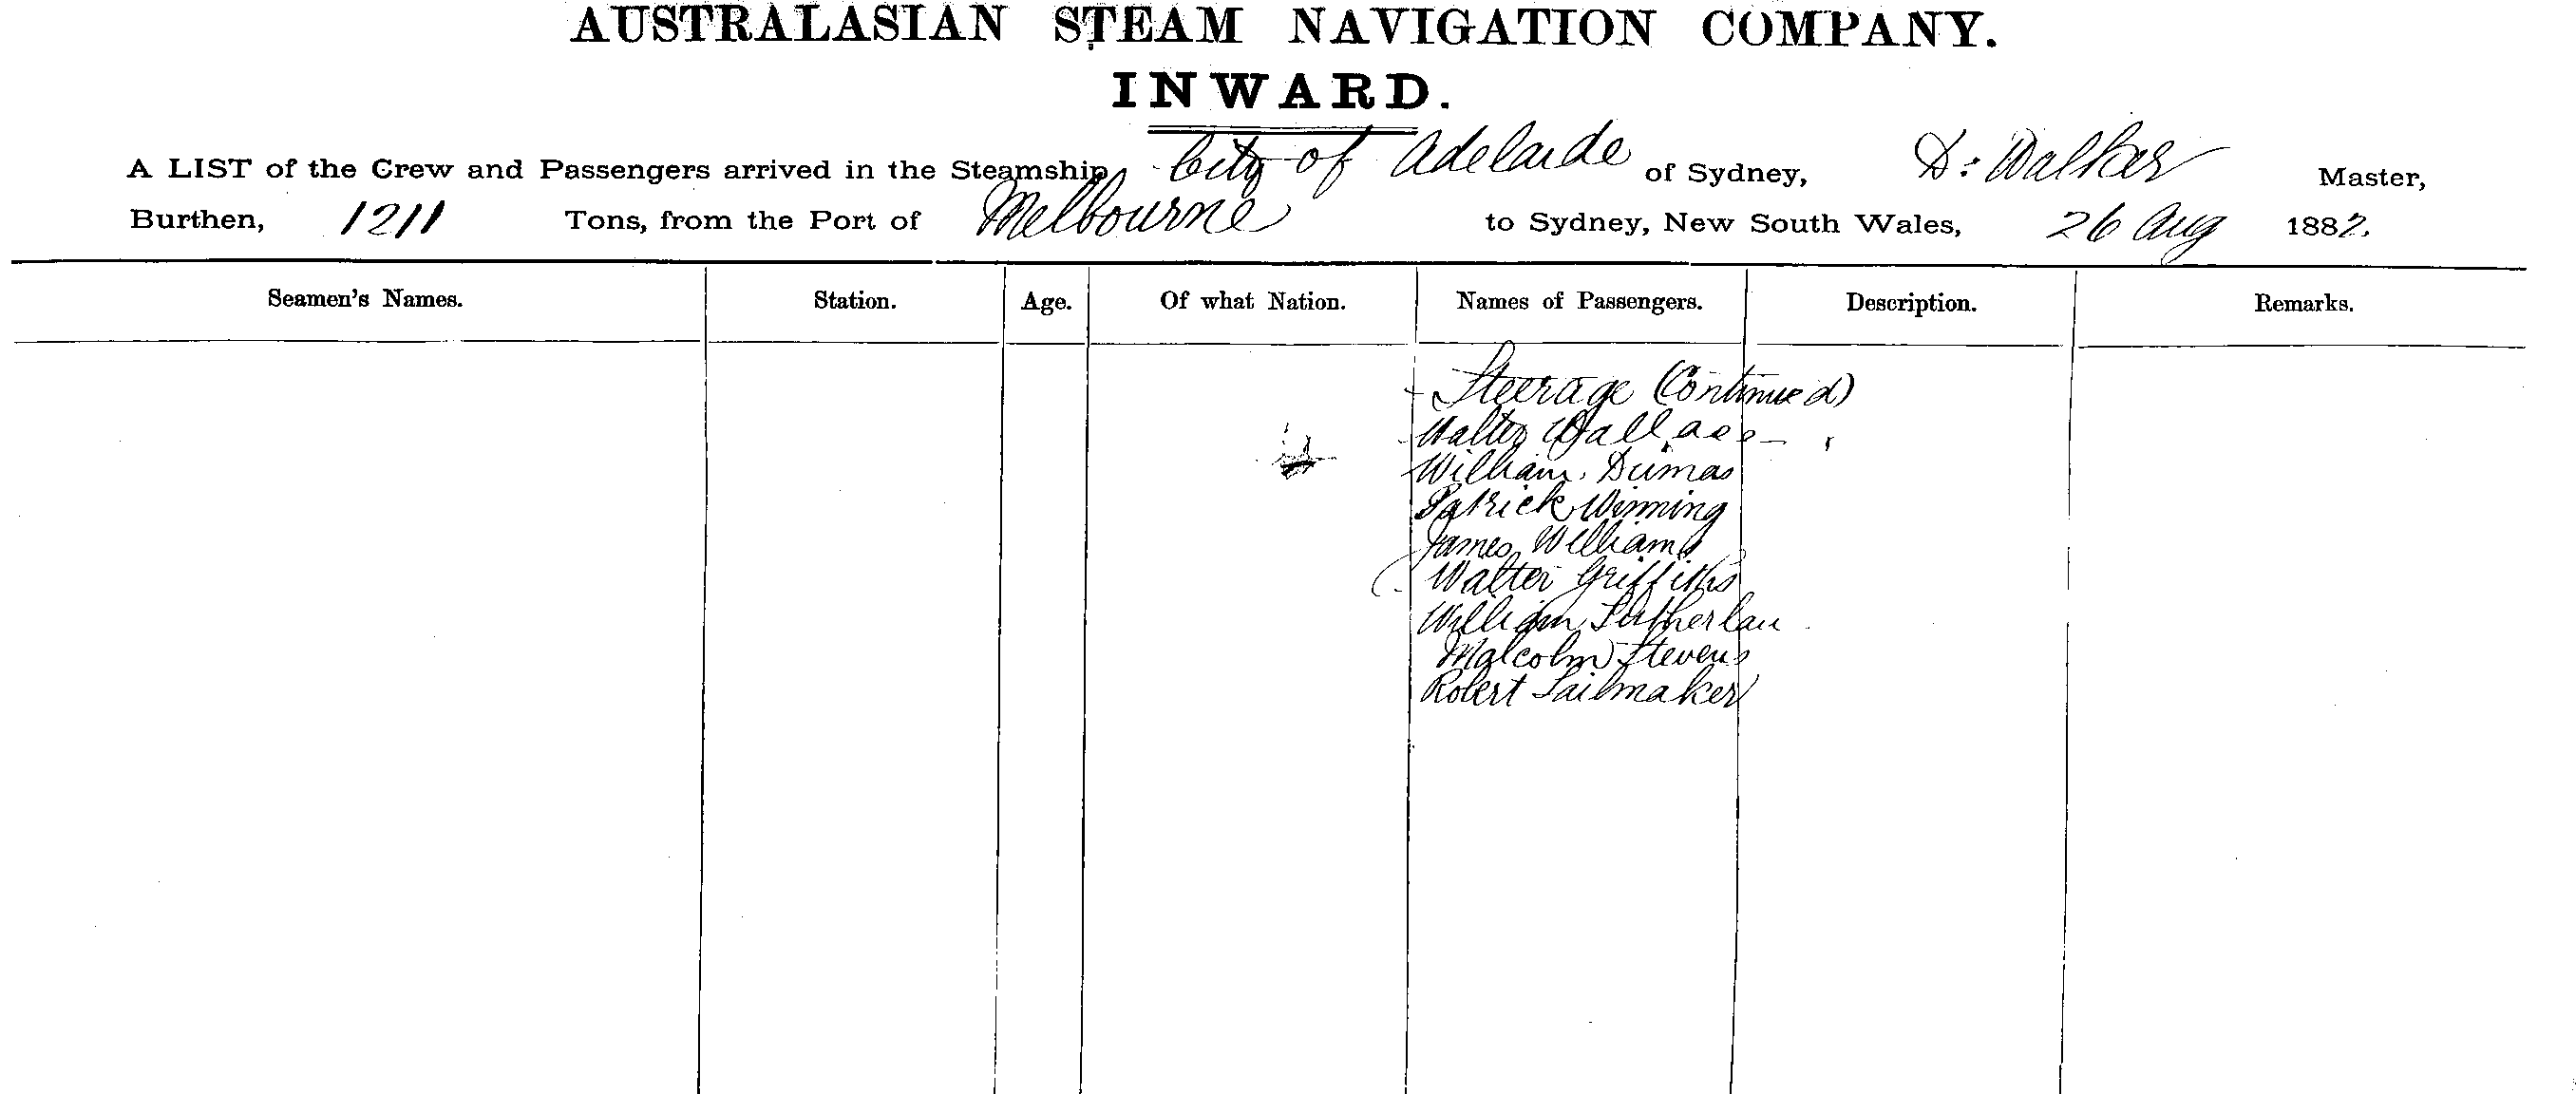 AUSTRALASIAN STEAM NAVIGATION COMPANY.
INWARD.
A LIST of the Crew and Passengers arrived in the Steamship City of Adelaide of Sydney, D: Walker Master,
Burthen, 1211 Tons, from the Port of Melbourne to Sydney, New South Wales, 26 Aug 1882.
Seamen's Names. Station. Age. Of what Nation. Names of Passengers. Description. Remarks.
Steerage (Continued)
Walter Wallace
William Dumas
Patrick Winning
James Williams
Walter Griffiths
William Sutherlan
Malcolm Stevens
Robert Sailmaker